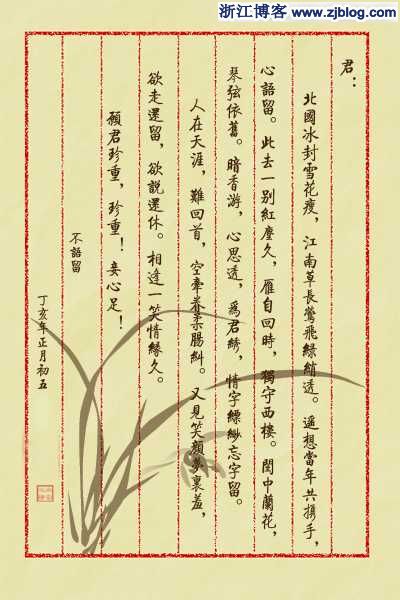 浙江博客 www.zjblog.com
君：
北國冰封雪花瘦，江南草長鶯飛綠綃透。遥想當年共攜手，
心語留。此去一别紅塵久，雁自回時，獨守西樓。閨中蘭花，
琴弦依舊。暗香游，心思透，爲君綉，情字縹緲忘字留。
人在天涯，難回首，空牽眷柔腸糾。又見笑顏夢裏羞，
欲走還留，欲說還休。相逢一笑情緣久。
願君珍重，珍重！妾心足！
不語留
丁亥年正月初五